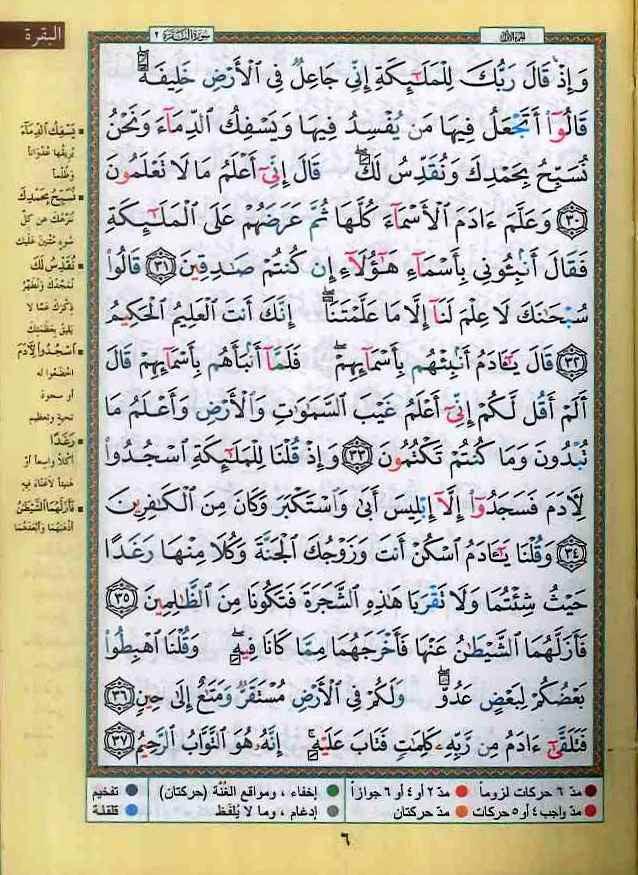 البقرة
الجزء الأول
سورة البقرة ٢
وَإِذْ قَالَ رَبُّكَ لِلْمَلَـٰٓئِكَةِ إِنِّي جَاعِلٌ فِي ٱلْأَرْضِ خَلِيفَةً ۖ
قَالُوٓا۟ أَتَجْعَلُ فِيهَا مَن يُفْسِدُ فِيهَا وَيَسْفِكُ ٱلدِّمَآءَ وَنَحْنُ
نُسَبِّحُ بِحَمْدِكَ وَنُقَدِّسُ لَكَ ۖ قَالَ إِنِّيٓ أَعْلَمُ مَا لَا تَعْلَمُونَ
﴿٣٠﴾ وَعَلَّمَ ءَادَمَ ٱلْأَسْمَآءَ كُلَّهَا ثُمَّ عَرَضَهُمْ عَلَى ٱلْمَلَـٰٓئِكَةِ
فَقَالَ أَنۢبِـُٔونِي بِأَسْمَآءِ هَـٰٓؤُلَآءِ إِن كُنتُمْ صَـٰدِقِينَ ﴿٣١﴾ قَالُوا۟
سُبْحَـٰنَكَ لَا عِلْمَ لَنَآ إِلَّا مَا عَلَّمْتَنَآ ۖ إِنَّكَ أَنتَ ٱلْعَلِيمُ ٱلْحَكِيمُ
﴿٣٢﴾ قَالَ يَـٰٓـَٔادَمُ أَنۢبِئْهُم بِأَسْمَآئِهِمْ ۖ فَلَمَّآ أَنۢبَأَهُم بِأَسْمَآئِهِمْ قَالَ
أَلَمْ أَقُل لَّكُمْ إِنِّيٓ أَعْلَمُ غَيْبَ ٱلسَّمَـٰوَٰتِ وَٱلْأَرْضِ وَأَعْلَمُ مَا
تُبْدُونَ وَمَا كُنتُمْ تَكْتُمُونَ ﴿٣٣﴾ وَإِذْ قُلْنَا لِلْمَلَـٰٓئِكَةِ ٱسْجُدُوا۟
لِـَٔادَمَ فَسَجَدُوٓا۟ إِلَّآ إِبْلِيسَ أَبَىٰ وَٱسْتَكْبَرَ وَكَانَ مِنَ ٱلْكَـٰفِرِينَ
﴿٣٤﴾ وَقُلْنَا يَـٰٓـَٔادَمُ ٱسْكُنْ أَنتَ وَزَوْجُكَ ٱلْجَنَّةَ وَكُلَا مِنْهَا رَغَدًا
حَيْثُ شِئْتُمَا وَلَا تَقْرَبَا هَـٰذِهِ ٱلشَّجَرَةَ فَتَكُونَا مِنَ ٱلظَّـٰلِمِينَ ﴿٣٥﴾
فَأَزَلَّهُمَا ٱلشَّيْطَـٰنُ عَنْهَا فَأَخْرَجَهُمَا مِمَّا كَانَا فِيهِ ۖ وَقُلْنَا ٱهْبِطُوا۟
بَعْضُكُمْ لِبَعْضٍ عَدُوٌّ ۖ وَلَكُمْ فِي ٱلْأَرْضِ مُسْتَقَرٌّ وَمَتَـٰعٌ إِلَىٰ حِينٍ ﴿٣٦﴾
فَتَلَقَّىٰٓ ءَادَمُ مِن رَّبِّهِۦ كَلِمَـٰتٍ فَتَابَ عَلَيْهِ ۚ إِنَّهُۥ هُوَ ٱلتَّوَّابُ ٱلرَّحِيمُ ﴿٣٧﴾
يَسْفِكُ ٱلدِّمَآءَ
يُرِيقُها عُدْوَانًا
وظُلْمًا
نُسَبِّحُ بِحَمْدِكَ
نُنَزِّهُكَ عن كلّ
سُوءٍ مُثْنِينَ عَلَيْكَ
نُقَدِّسُ لَكَ
نُمَجِّدُكَ وَنُطَهِّرُ
ذِكْرَكَ عَمَّا لا
يَلِيقُ بِعَظَمَتِكَ
ٱسْجُدُوا۟ لِـَٔادَمَ
اخْضَعُوا له
أو سجودَ
تحية وتعظيم
رَغَدًا
أكْلاً واسِعاً أوْ
هَنِيئاً لا عَنَاءَ فِيهِ
فَأَزَلَّهُمَا ٱلشَّيْطَـٰنُ
أذْهَبَهُمَا وَأبْعَدَهُمَا
مدّ ٦ حركات لزوماً
مدّ ٢ أو ٤ أو ٦ جوازاً
إخفاء ، ومواقع الغُنَّة (حركتان)
تفخيم
مدّ واجب ٤ أو ٥ حركات
مدّ حركتان
إدغام ، وما لا يُلفَظ
قلقلة
٦